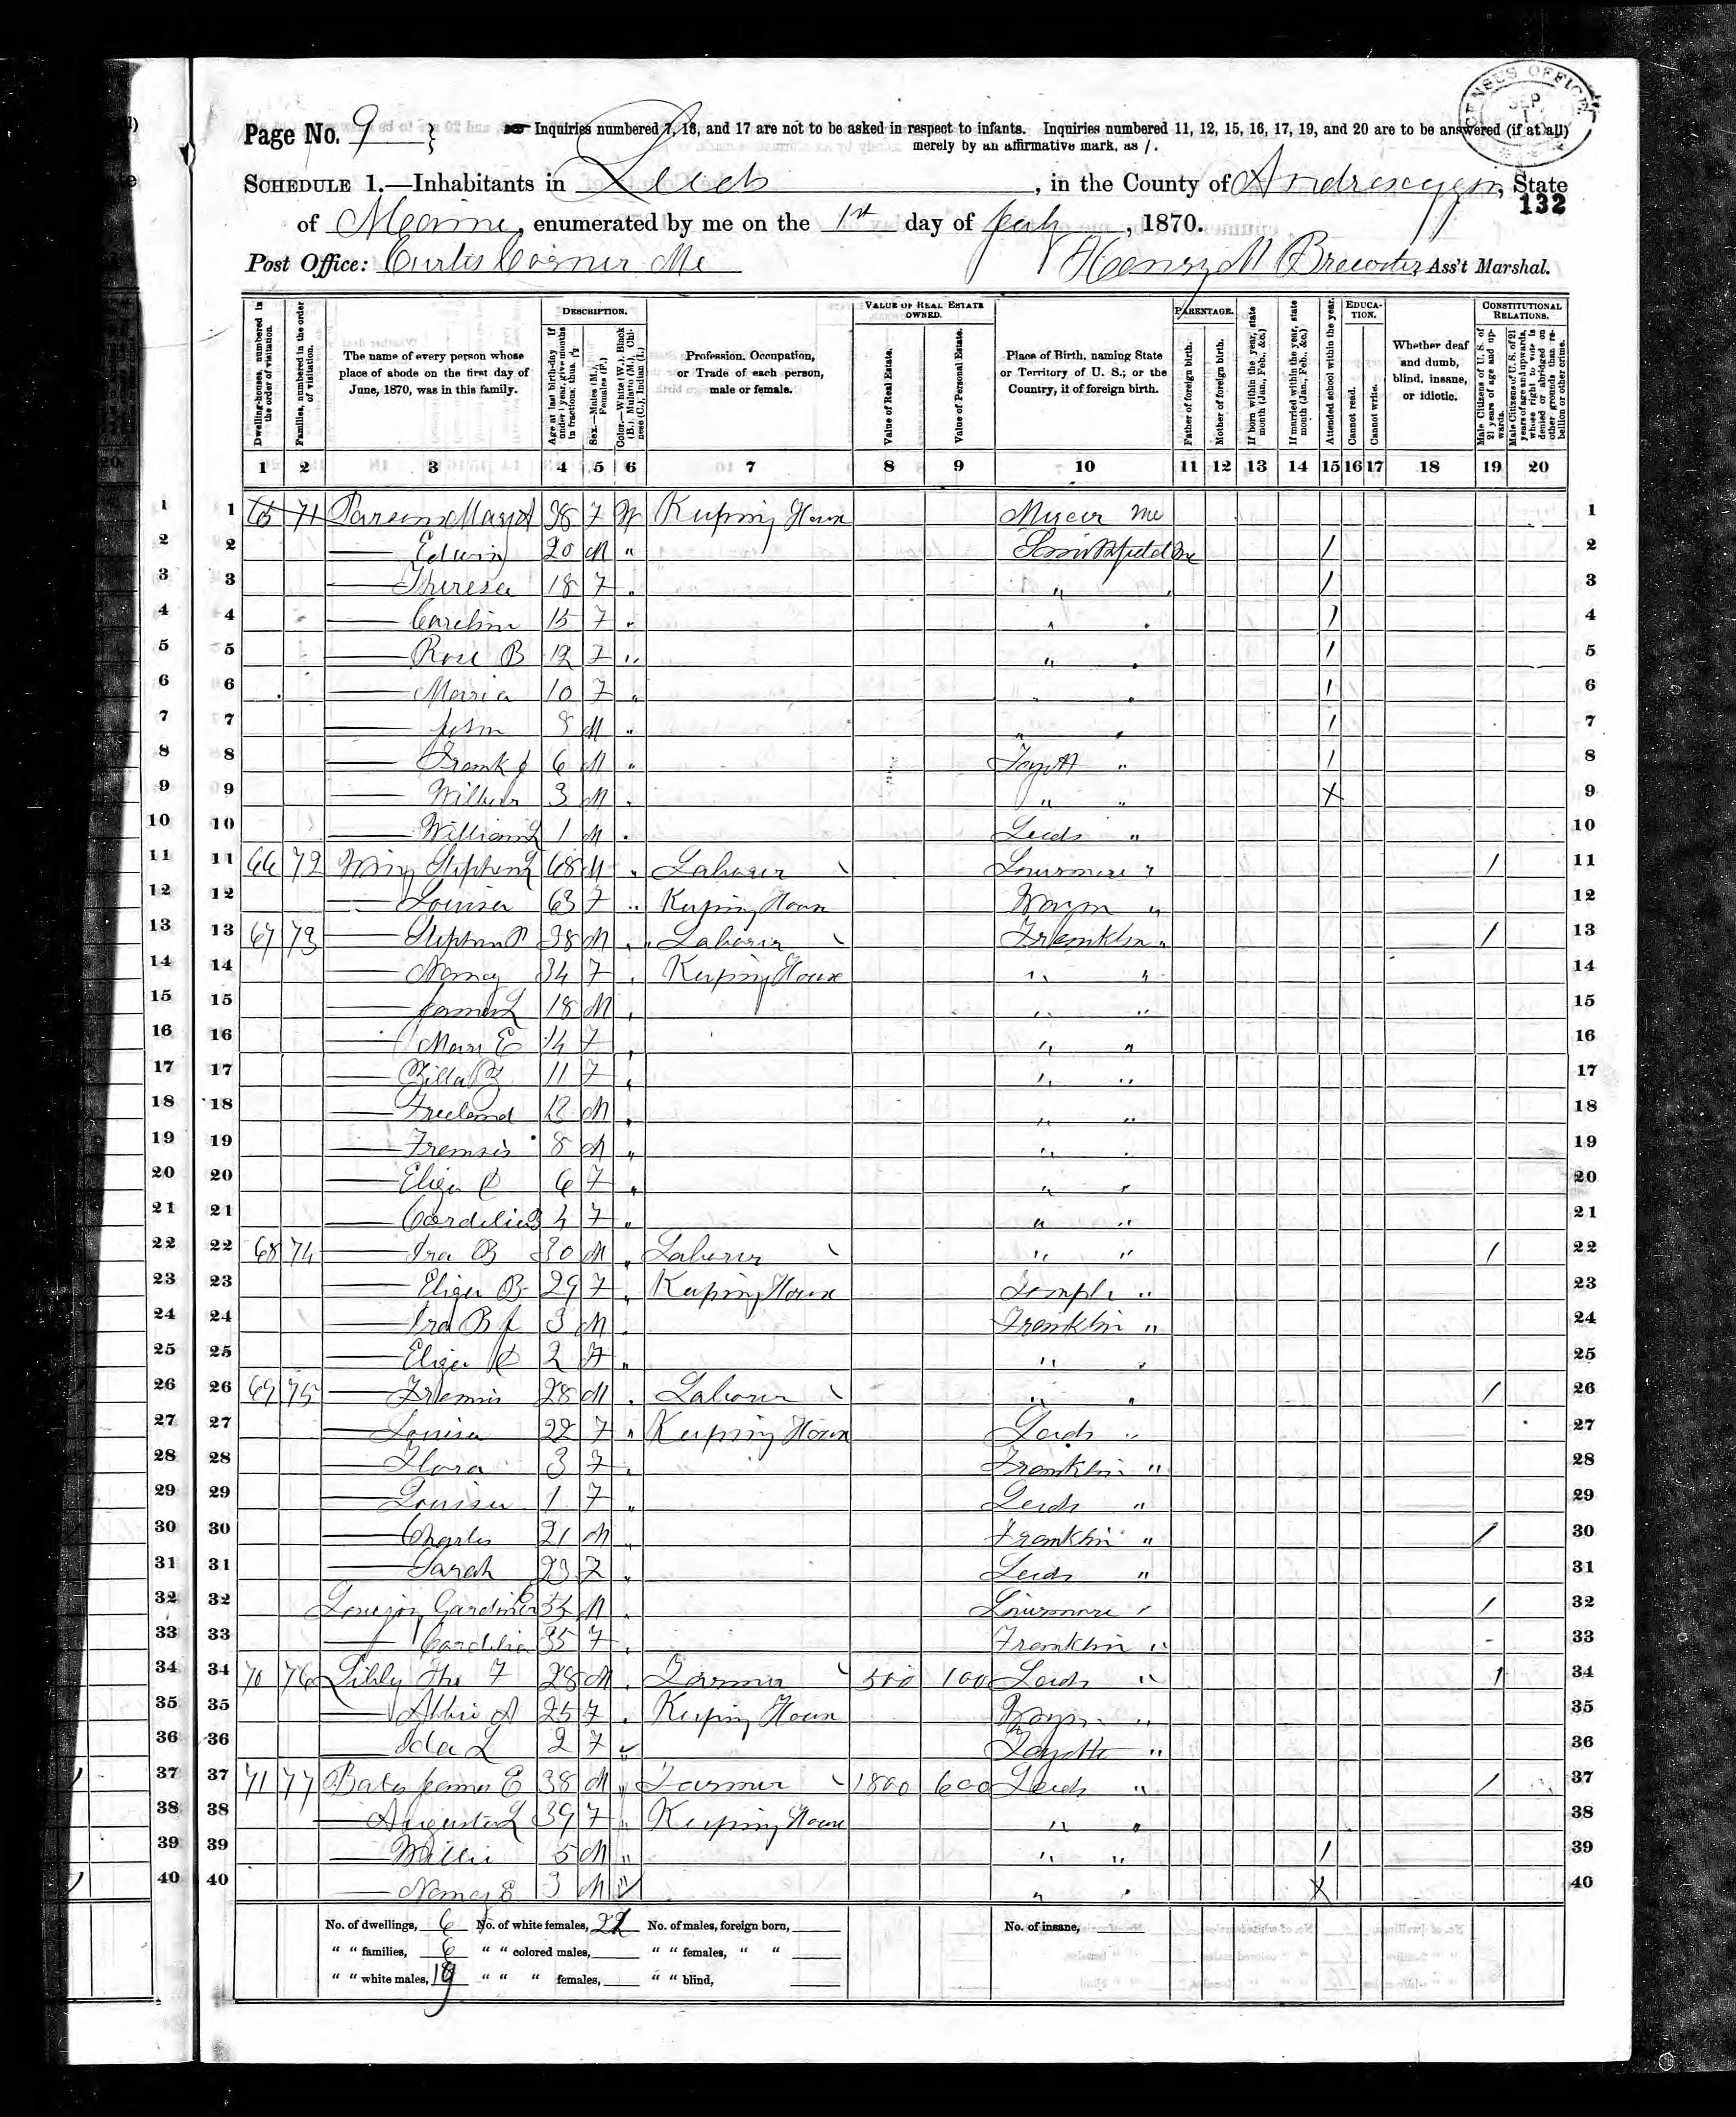 Page No. 9
Inquiries numbered 7, 16, and 17 are not to be asked in respect to infants. Inquiries numbered 11, 12, 15, 16, 17, 19, and 20 are to be answered (if at all)
merely by an affirmative mark, as /.
CENSUS OFFICE
SEP
SCHEDULE 1.—Inhabitants in Leeds, in the County of Androscoggin, State
132
of Maine, enumerated by me on the 1st day of July, 1870.
Post Office: Curtis Corner Me Henry M Brewster Ass't Marshal.
DESCRIPTION. VALUE OF REAL ESTATE OWNED. PARENTAGE. EDUCATION. CONSTITUTIONAL RELATIONS.
Dwelling-houses, numbered in the order of visitation.
Families, numbered in the order of visitation.
The name of every person whose place of abode on the first day of June, 1870, was in this family.
Age at last birth-day. If under 1 year, give months in fractions, thus, 3/12
Sex.—Males (M.), Females (F.)
Color.—White (W.), Black (B.), Mulatto (M.), Chinese (C.), Indian (I.)
Profession, Occupation, or Trade of each person, male or female.
Value of Real Estate.
Value of Personal Estate.
Place of Birth, naming State or Territory of U. S.; or the Country, if of foreign birth.
Father of foreign birth.
Mother of foreign birth.
If born within the year, state month (Jan., Feb., &c.)
If married within the year, state month (Jan., Feb., &c.)
Attended school within the year.
Cannot read.
Cannot write.
Whether deaf and dumb, blind, insane, or idiotic.
Male Citizens of U. S. of 21 years of age and upwards.
Male Citizens of U. S. of 21 years of age and upwards, whose right to vote is denied or abridged on other grounds than rebellion or other crime.
1 2 3 4 5 6 7 8 9 10 11 12 13 14 15 16 17 18 19 20
1 65 71 Parsons Mary A 38 F W Keeping House Me 1
2 — Edwin 20 M " Smithfield Me / 2
3 — Theresa 18 F " " " / 3
4 — Caroline 15 F " " " / 4
5 — Rose B 12 F " " " / 5
6 — Maria 10 F " " " / 6
7 — John 8 M " " " / 7
8 — Frank J 6 M " Fayett " / 8
9 — Wilber 3 M " " " X 9
10 — William L 1 M " Leeds " 10
11 66 72 Wing Stephen L 68 M " Laborer Livermore " / 11
12 — Louisa 63 F " Keeping House Wayn " 12
13 67 73 — Stephen P 38 M " Laborer Franklin " / 13
14 — Nancy 34 F " Keeping House " " 14
15 — James L 18 M " " " 15
16 — Mary E 14 F " " " 16
17 — 11 F " " " 17
18 — Freeland 12 M " " " 18
19 — Francis 8 M " " " 19
20 — Eliza 6 F " " " 20
21 — Cordelia B 4 F " " " 21
22 68 74 — Ira B 30 M " Laborer " " / 22
23 — Eliza B 29 F " Keeping House Temple " 23
24 — Ira B J 3 M " Franklin " 24
25 — Eliza 2 F " " " 25
26 69 75 — Francis 28 M " Laborer " " / 26
27 — Louisa 22 F " Keeping House Leeds " 27
28 — Flora 3 F " Franklin " 28
29 — Louisa 1 F " Leeds " 29
30 — Charles 21 M " Franklin " / 30
31 — Sarah 23 F " Leeds " 31
32 Lovejoy Gardiner M " Livermore " / 32
33 — Cordelia 35 F " Franklin " - 33
34 70 76 Libby F 28 M " Farmer 500 100 Leeds " / 34
35 — Abbie A 25 F " Keeping House Wayn " 35
36 — Ida L 2 F " Fayette " 36
37 71 77 Bates James E 38 M " Farmer 1800 600 Leeds " / 37
38 — Augusta L 39 F " Keeping House " " 38
39 — Willie 5 M " " " / 39
40 — E 3 M " " " X 40
No. of dwellings, 6 No. of white females, 22 No. of males, foreign born, No. of insane,
" " families, 6 " " colored males, " " females, " "
" " white males, 19 " " " females, " " blind,